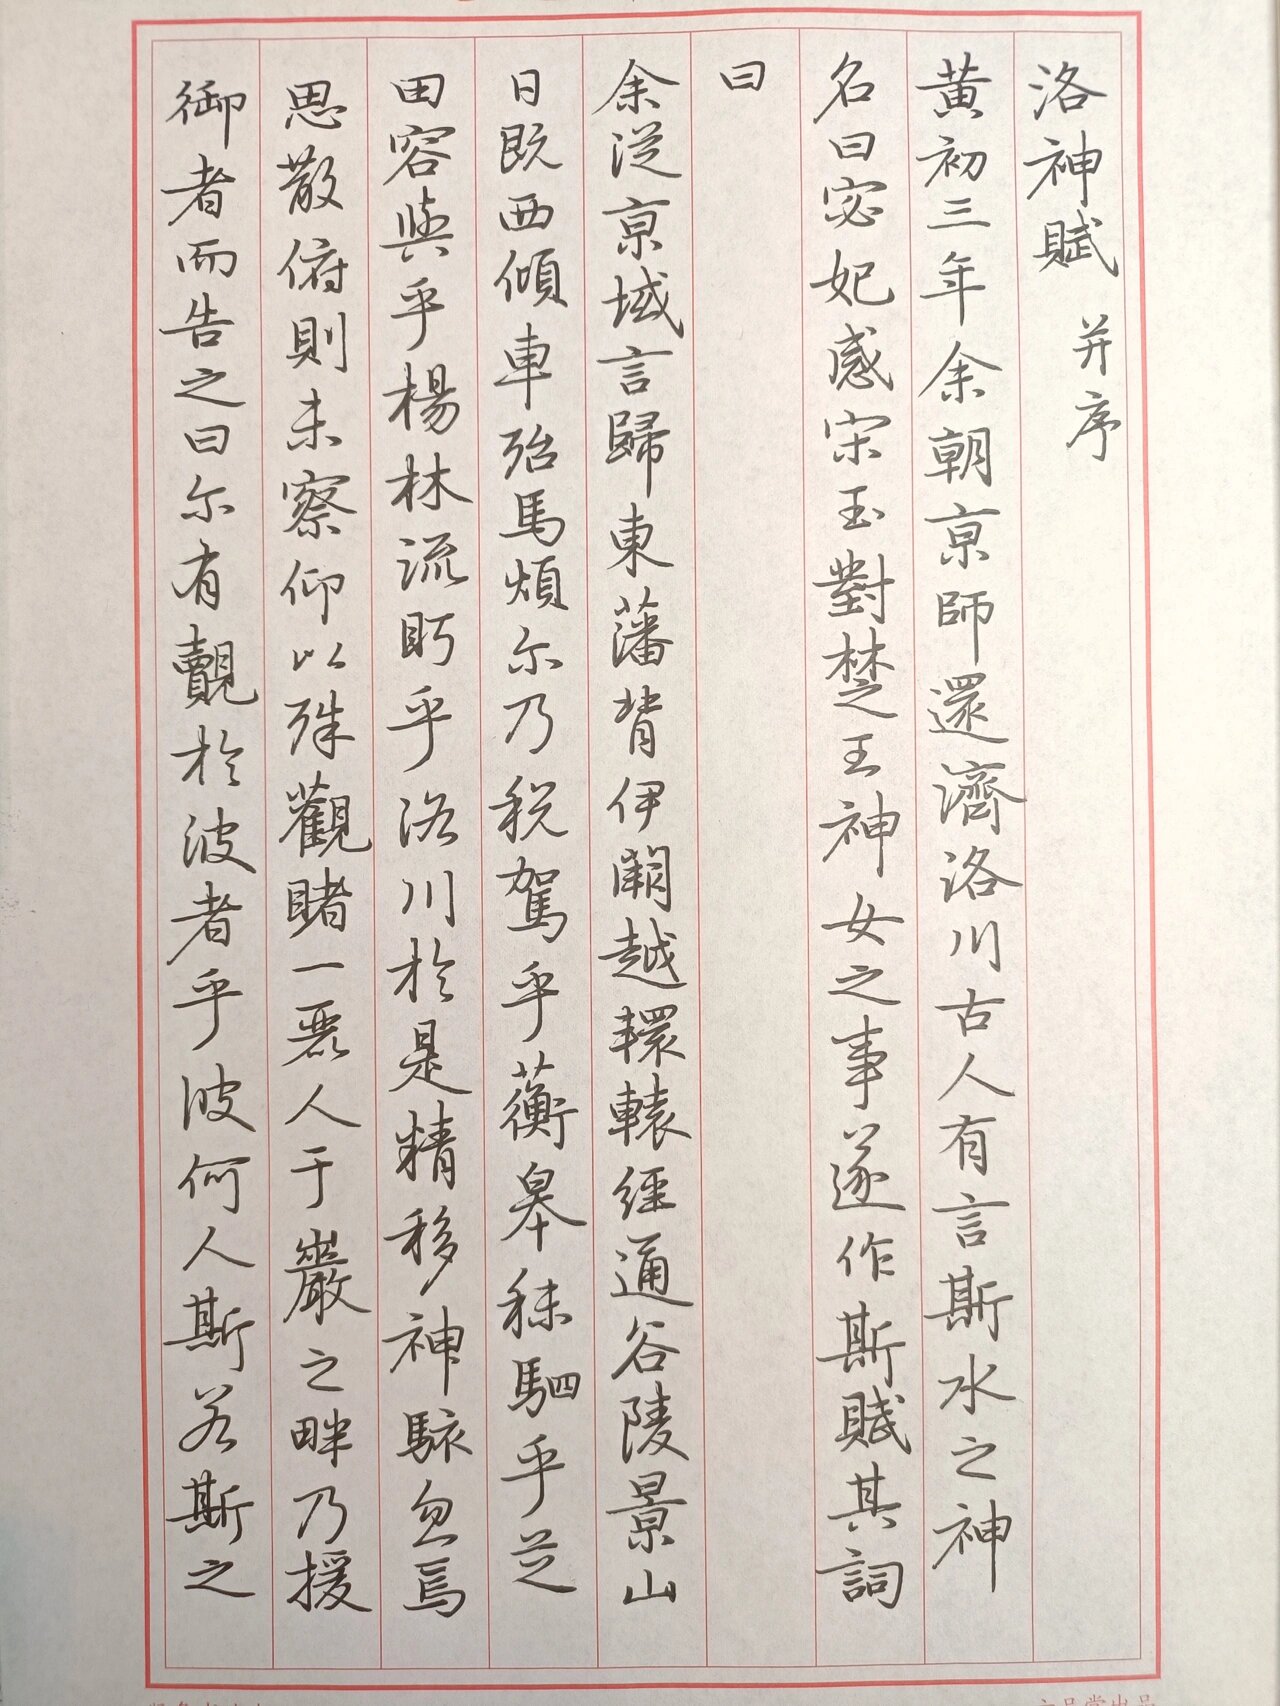 洛神賦 并序
黄初三年余朝京師還濟洛川古人有言斯水之神
名曰宓妃感宋玉對楚之王神女之事遂作斯賦其詞
曰
余從京域言歸東藩背伊闕越轘轅經通谷陵景山
日既西傾車殆馬煩尔乃税駕乎蘅皋秣駟乎芝
田容與乎楊林流眄乎洛川於是精移神駭忽焉
思散俯則未察仰以殊觀睹一麗人于巖之畔乃援
御者而告之曰尔有覿於彼者乎彼何人斯若斯之